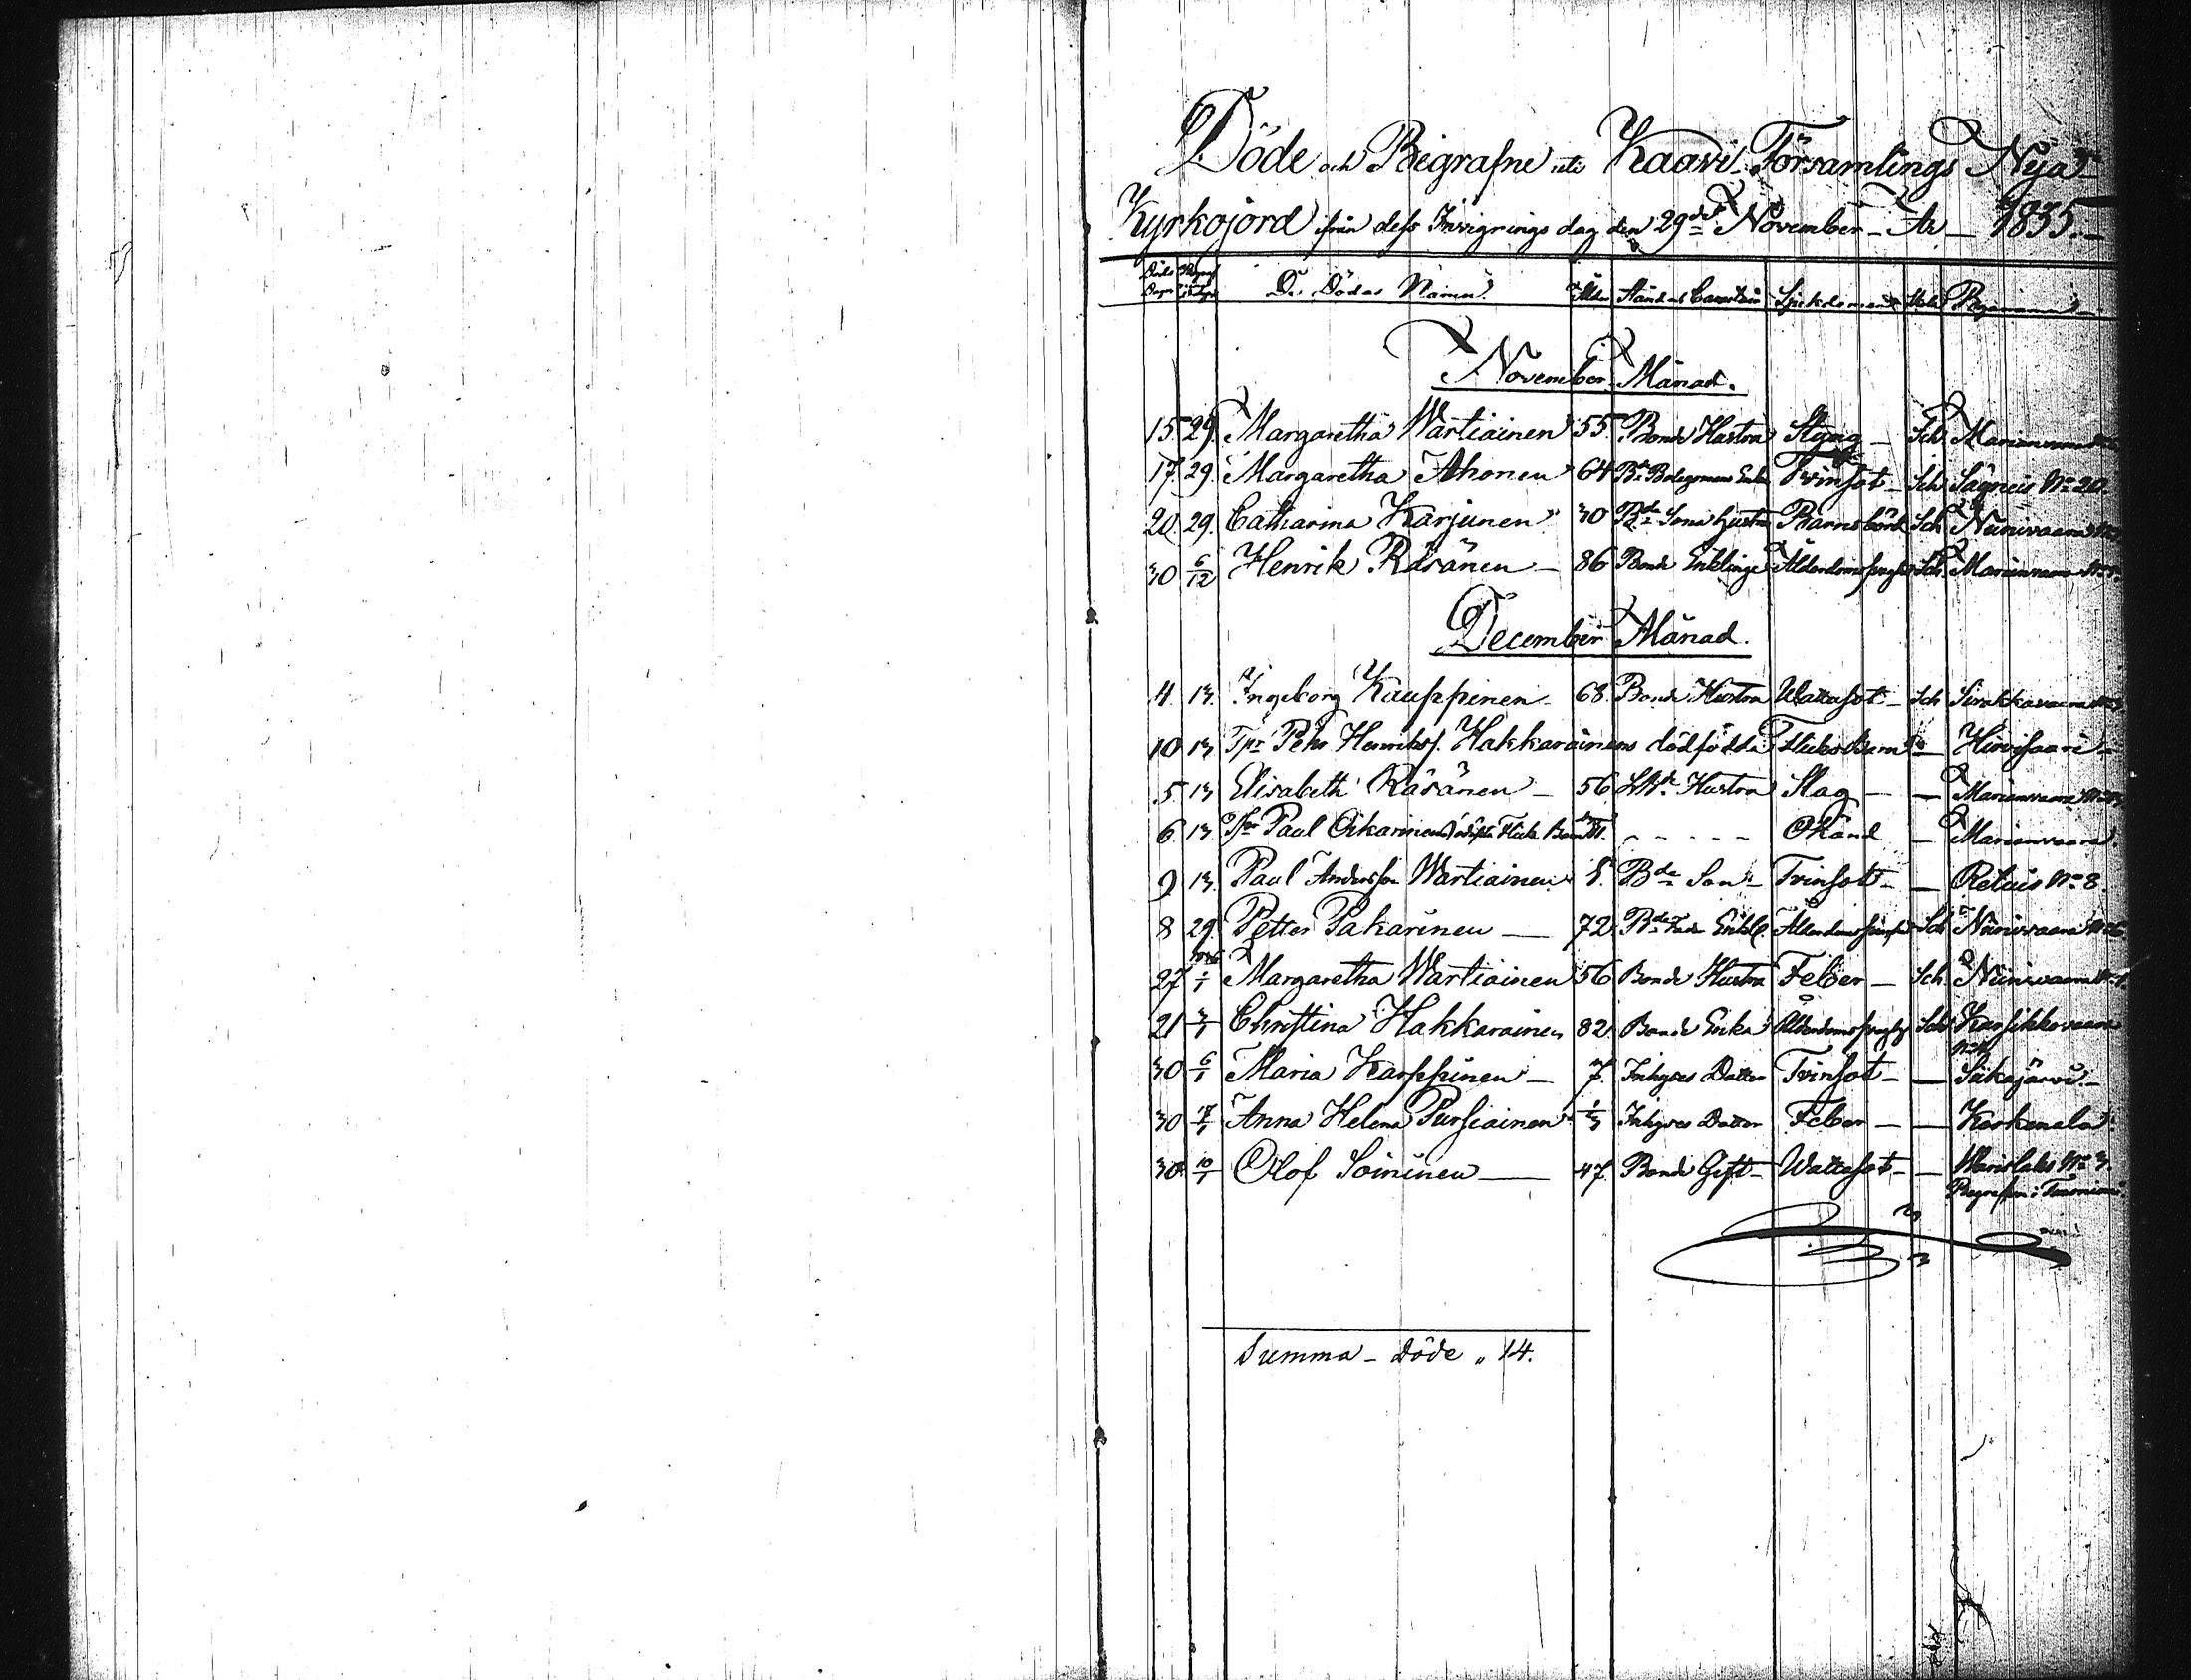 Döde och Begrafne uti Kaavi Församlings Nya
Kyrkojord ifrån dess Invignings dag den 29de November År 1835.
Döds Dagar Begrafn: Dagar De Dödas Namn. Ålder Stånd och Caracteire Sjukdomar Byarnamn
November Månad.
15. 29. Margaretha Wartiainen 55. Bonde Hustru Styng Sch. Marianvaara
17. 29. Margaretha Ahonen 64 Bde Bolagsmans Enka Tvinsot Sch Sägneis No 20.
20. 29. Catharina Karjunen 30 Bde Sons hustru Barnsbörd Sch Niinivaara
30 6/12 Henrik Räsänen 86 Bonde Enkling Ålderdoms Sch. Marianvaara
December Månad.
4. 13. Ingeborg Kauppinen 68. Bonde Hustru Wattusot Sch Sivakkavaara
10 13 Tpr Pehr Henrikss. Hakkarainens dödfödda Flickebarn Hirvisaari
5 13 Elisabeth Räsänen 56 Hustru Slag Marianvaara
6. 13. Paul Oikarinens Flicke Barn Okänd Marianvaara.
9 13. Paul Andersson Wartiainen Bde Son Tvinsot Retuis No 8.
8 29. Petter Pakarinen 72 Bde Enkl. Ålderdoms Sch Niinivaara
27 1836 1/1 Margaretha Wartiainen 56 Bonde Hustru Feber Sch. Niinivaara
21 3/1 Christina Hakkarainen 82. Bonde Enka Ålderdoms Sch Karsikkovaara
30 6/1 Maria Karppinen 7. Inhyses Dotter Tvinsot Siikajärvi
30 1/3 Anna Helena Pursiainen Inhyses Dotter Feber Kerkenala
30. 10/1 Olof Soininen 47. Bonde Gift Wattusot Warislaks No 3.
Begrafven i Tuusniemi
Summa Döde 14.